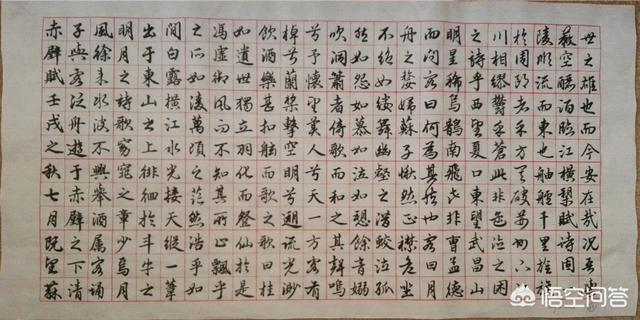 赤壁賦壬戌之秋七月既望蘇
子與客泛舟遊于赤壁之下清
風徐来水波不興舉酒属客诵
明月之詩歌窈窕之章少焉月
出于東山之上徘徊於斗牛之
間白露横江水光接天縱一葦
之所如凌萬頃之茫然浩乎如
馮虚御風而不知其所止飄乎
如遺世獨立羽化而登仙於是
飲酒樂甚扣舷而歌之歌曰桂
棹兮蘭槳擊空明兮遡流光渺
兮予懷望美人兮天一方客有
吹洞簫者倚歌而和之其聲嗚
然如怨如慕如泣如愬餘音嫋
不絶如縷舞幽壑之潛蛟泣孤
舟之嫠婦蘇子愀然正襟危坐
而問客曰何為其然也客曰月
明星稀烏鵲南飛此非曹孟德
之詩乎西望夏口東望武昌山
川相繆鬱乎蒼此非之困
於周郎者乎方其破荆州下
陵順流而東也舳艫千里旌旗
蔽空釃酒臨江横槊賦詩固一
世之雄也而今安在哉况吾與
悟空问答